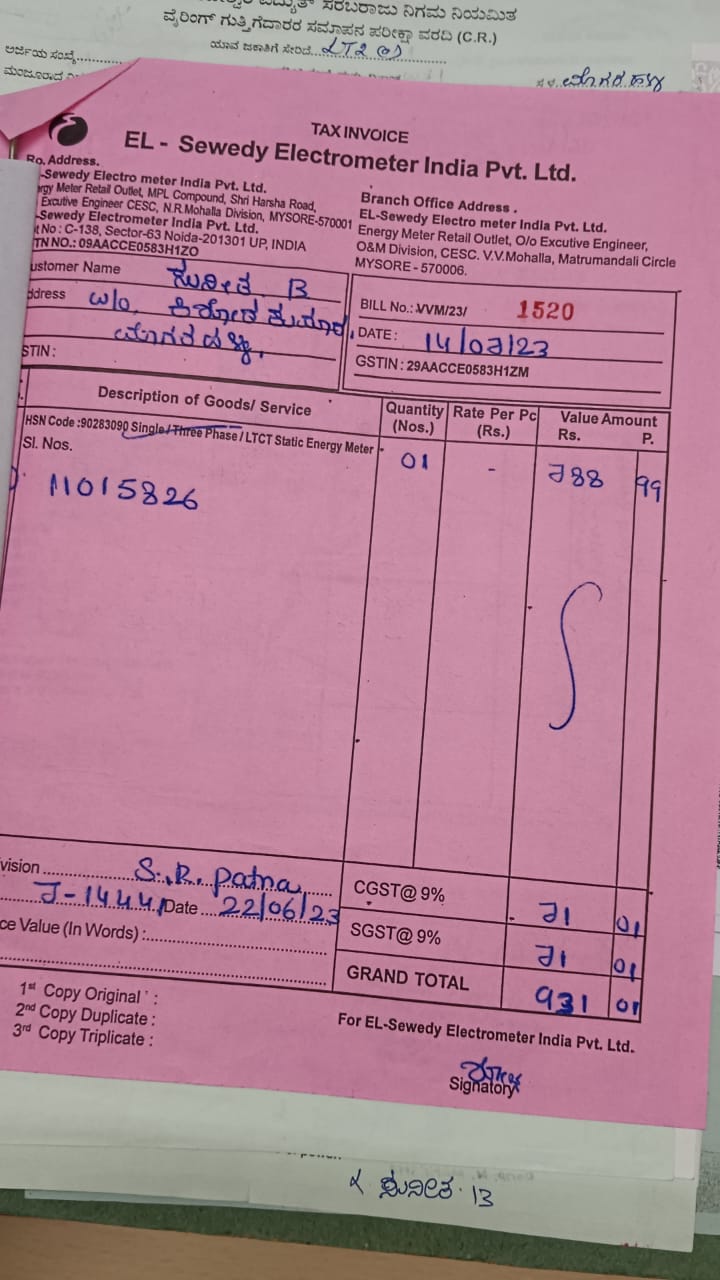 ಸರಬರಾಜು ನಿಗಮ ನಿಯಮಿತ
ವೈರಿಂಗ್ ಗುತ್ತಿಗೆದಾರರ ಸಮಾಪನ ಪರೀಕ್ಷಾ ವರದಿ (C.R.)
ಯಾವ ಜಕಾತಿಗೆ ಸೇರಿದೆ...LT2(a)
ಅರ್ಜಿಯ ಸಂಖ್ಯೆ............
TAX INVOICE
EL - Sewedy Electrometer India Pvt. Ltd.
Ro. Address.
-Sewedy Electro meter India Pvt. Ltd.
rgy Meter Retail Outlet, MPL Compound, Shri Harsha Road,
Excutive Engineer CESC, N.R.Mohalla Division, MYSORE-570001
-Sewedy Electrometer India Pvt. Ltd.
t No : C-138, Sector-63 Noida-201301 UP, INDIA
TN NO.: 09AACCE0583H1ZO
Branch Office Address .
EL-Sewedy Electro meter India Pvt. Ltd.
Energy Meter Retail Outlet, O/o Excutive Engineer,
O&M Division, CESC. V.V.Mohalla, Matrumandali Circle
MYSORE - 570006.
ustomer Name ಸುನೀತ B
ddress w/o, ಕಿಶೋರ ಕುಮಾರ,
STIN :
BILL No.: VVM/23/ 1520
DATE : 14/07/23
GSTIN : 29AACCE0583H1ZM
Description of Goods/ Service Quantity (Nos.) Rate Per Pc (Rs.) Value Amount Rs. P.
HSN Code :90283090 Single / Three Phase / LTCT Static Energy Meter
Sl. Nos. 01 - 788 99
11015826
vision S.R. Patna
J-1444, Date 22/06/23
ce Value (In Words) :
CGST@ 9% 71 01
SGST@ 9% 71 01
GRAND TOTAL 931 01
1st Copy Original :
2nd Copy Duplicate :
3rd Copy Triplicate :
For EL-Sewedy Electrometer India Pvt. Ltd.
Signatory
ಸುನೀತ. B